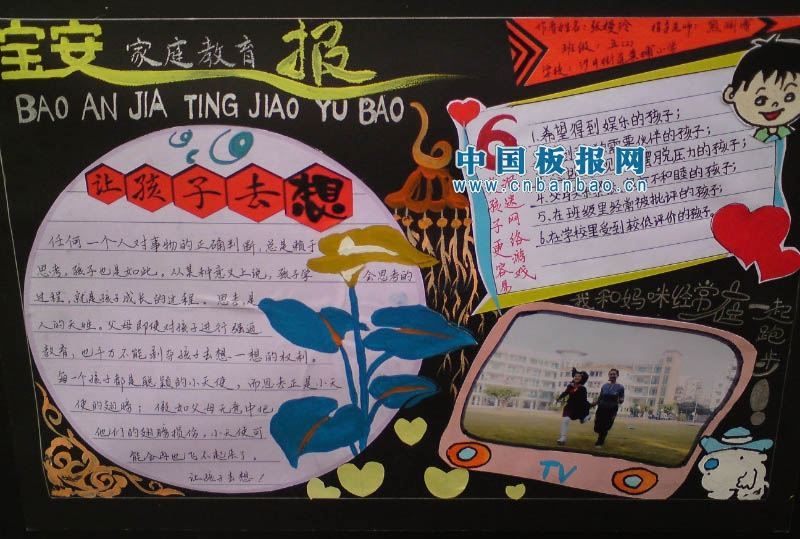 宝安 家庭教育 报
BAO AN JIA TING JIAO YU BAO
作者姓名:张
班级:五(2)
学校:
让孩子去想
任何一个人对事物的正确判断,总是赖于
思考,孩子也是如此。从某种意义上说,孩子学会思考的
过程,就是孩子成长的过程。思考是
人的天性。父母即使对孩子进行强迫
教育,也千万不能剥夺孩子去想一想的权利。
每一个孩子都是聪颖的小天使,而思考正是小天
使的翅膀;假如父母无意中把
他们的翅膀损伤,小天使可
能会再也飞不起来了。
让孩子去想!
6
孩子更容易
网络游戏
1.希望得到娱乐的孩子;
需要伙伴的孩子;
摆脱压力的孩子;
不和睦的孩子;
5.在班级里经常被批评的孩子;
6.在学校里受到较低评价的孩子。
中国板报网
www.cnbanbao.cn
我和妈咪经常在一起
跑步!
TV